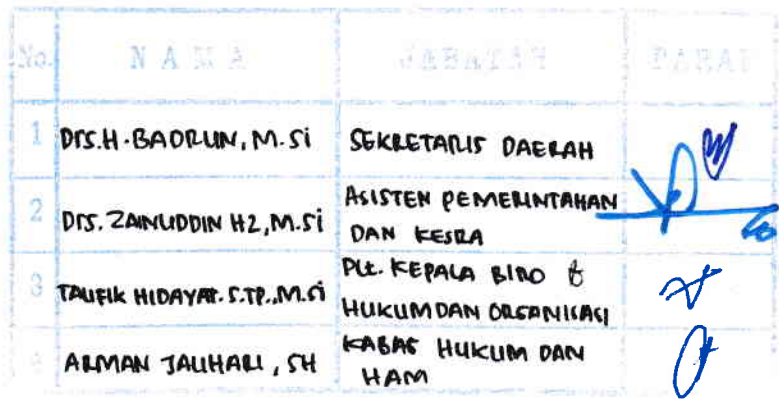 No. NAMA JABATAN PARAF
1 Drs.H.BADRUN, M.Si SEKRETARIS DAERAH
2 Drs. ZAINUDDIN HZ, M.Si ASISTEN PEMERINTAHAN
DAN KESRA
3 TAUFIK HIDAYAT. S.TP., M.Si Plt. KEPALA BIRO
HUKUM DAN ORGANISASI
4 ARMAN JAUHARI, SH KABAG HUKUM DAN
HAM